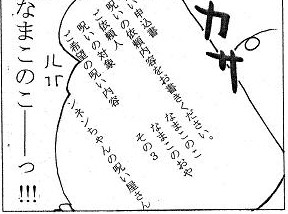 カサ
い申込書
呪いの依頼内容をお書きください。
ご依頼人　なまこのこ
呪いの対象　なまこのおや
ご希望の呪い内容　その3
ンネンちゃんの呪い屋さん
なまこのこーーっ!!!